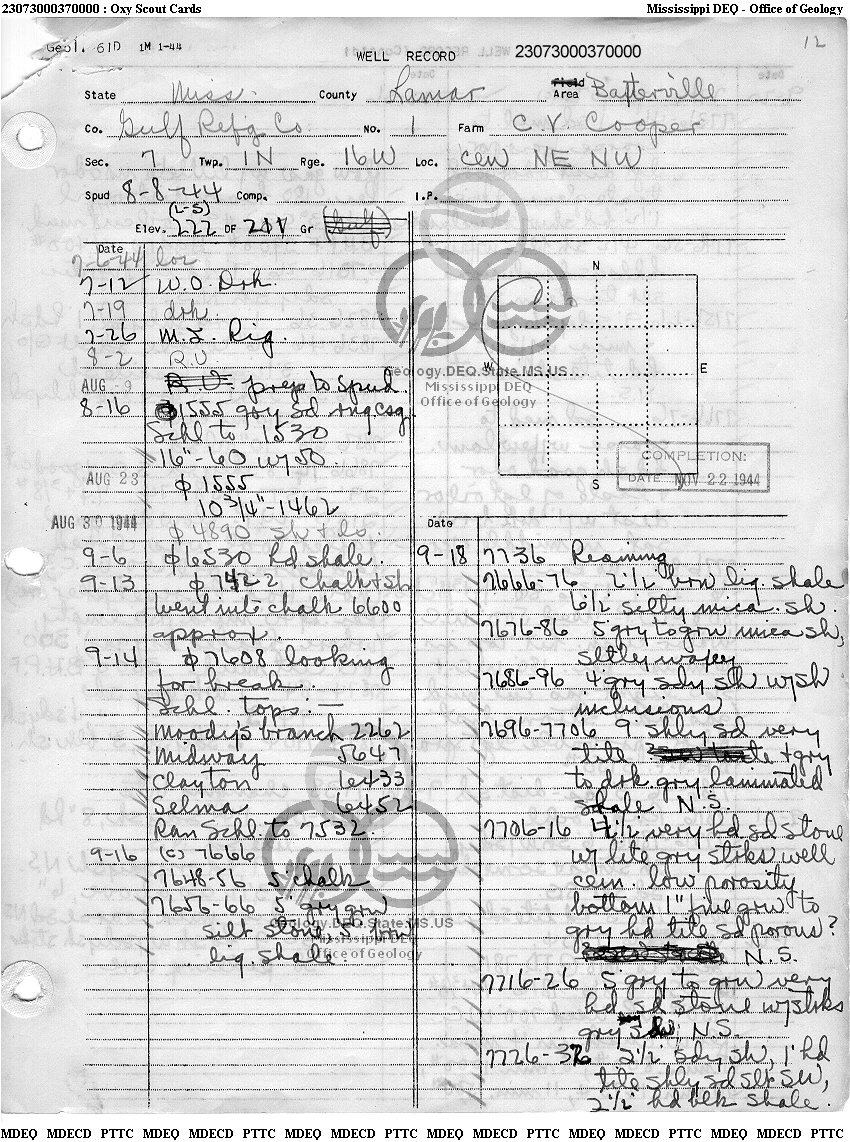 23073000370000 : Oxy Scout Cards
Mississippi DEQ - Office of Geology
Geol. 61D 1M 1-44
WELL RECORD 23073000370000
12
State Miss. County Lamar Area Baxterville
Co. Gulf Refg Co. No. 1 Farm C.V. Cooper
Sec. 7 Twp. 1N Rge. 16W Loc. cen NE NW
Spud 8-8-44 Comp. I.P.
(L-S)
Elev. 222 DF Gr (Gulf)
Date
7-6-44 loc
7-12 W.O. Drk.
7-19 drk.
7-26 M.I. Rig.
8-2 R.U.
AUG - 9 R.U. prep to spud
8-16 1555 gry sd rng csg
Schl to 1530
16"-60 w/50
AUG 23 φ 1555
10 3/4"-1462
AUG 30 1944
φ 4890 sh & ls.
9-6 φ 6530 hd shale.
9-13 φ 7422 chalk & sh
Went into chalk 6600
approx.
9-14 φ 7608 looking
for break.
Schl. tops: —
Moody's branch 2262
Midway 5647
Clayton 6433
Selma 6452
Ran Schl. to 7532.
9-16 (c) 7666
7648-56 5' chalk
7656-66 5' gry grn
silt stone 5' brn
lig. shale
N
W
E
S
COMPLETION:
DATE NOV 22 1944
Geology.DEQ.State.MS.US
Mississippi DEQ
Office of Geology
Date
9-18 7736 Reaming
7666-76 2 1/2' brn lig. shale
6 1/2' silty mica. sh.
7676-86 5' gry to grn mica sh,
sltley waxey
7686-96 4' gry sdy sh w/sh
inclusions
7696-7706 9' shly sd very
tite & gry
to drk. gry laminated
shale N.S.
7706-16 4 1/2' very hd sd stone
w/ lite gry strks well
cem. low porosity
bottom 1" fine grn to
gry hd tite sd porous?
N.S.
7716-26 5' gry to grn very
hd sd stone w/strks
gry sh NS.
7726-36 5 1/2' sdy sh, 1' hd
tite shly sd slt SW,
2 1/2' hd blk shale.
Geology.DEQ.State.MS.US
Mississippi DEQ
Office of Geology
MDEQ MDECD PTTC MDEQ MDECD PTTC MDEQ MDECD PTTC MDEQ MDECD PTTC MDEQ MDECD PTTC MDEQ MDECD PTTC